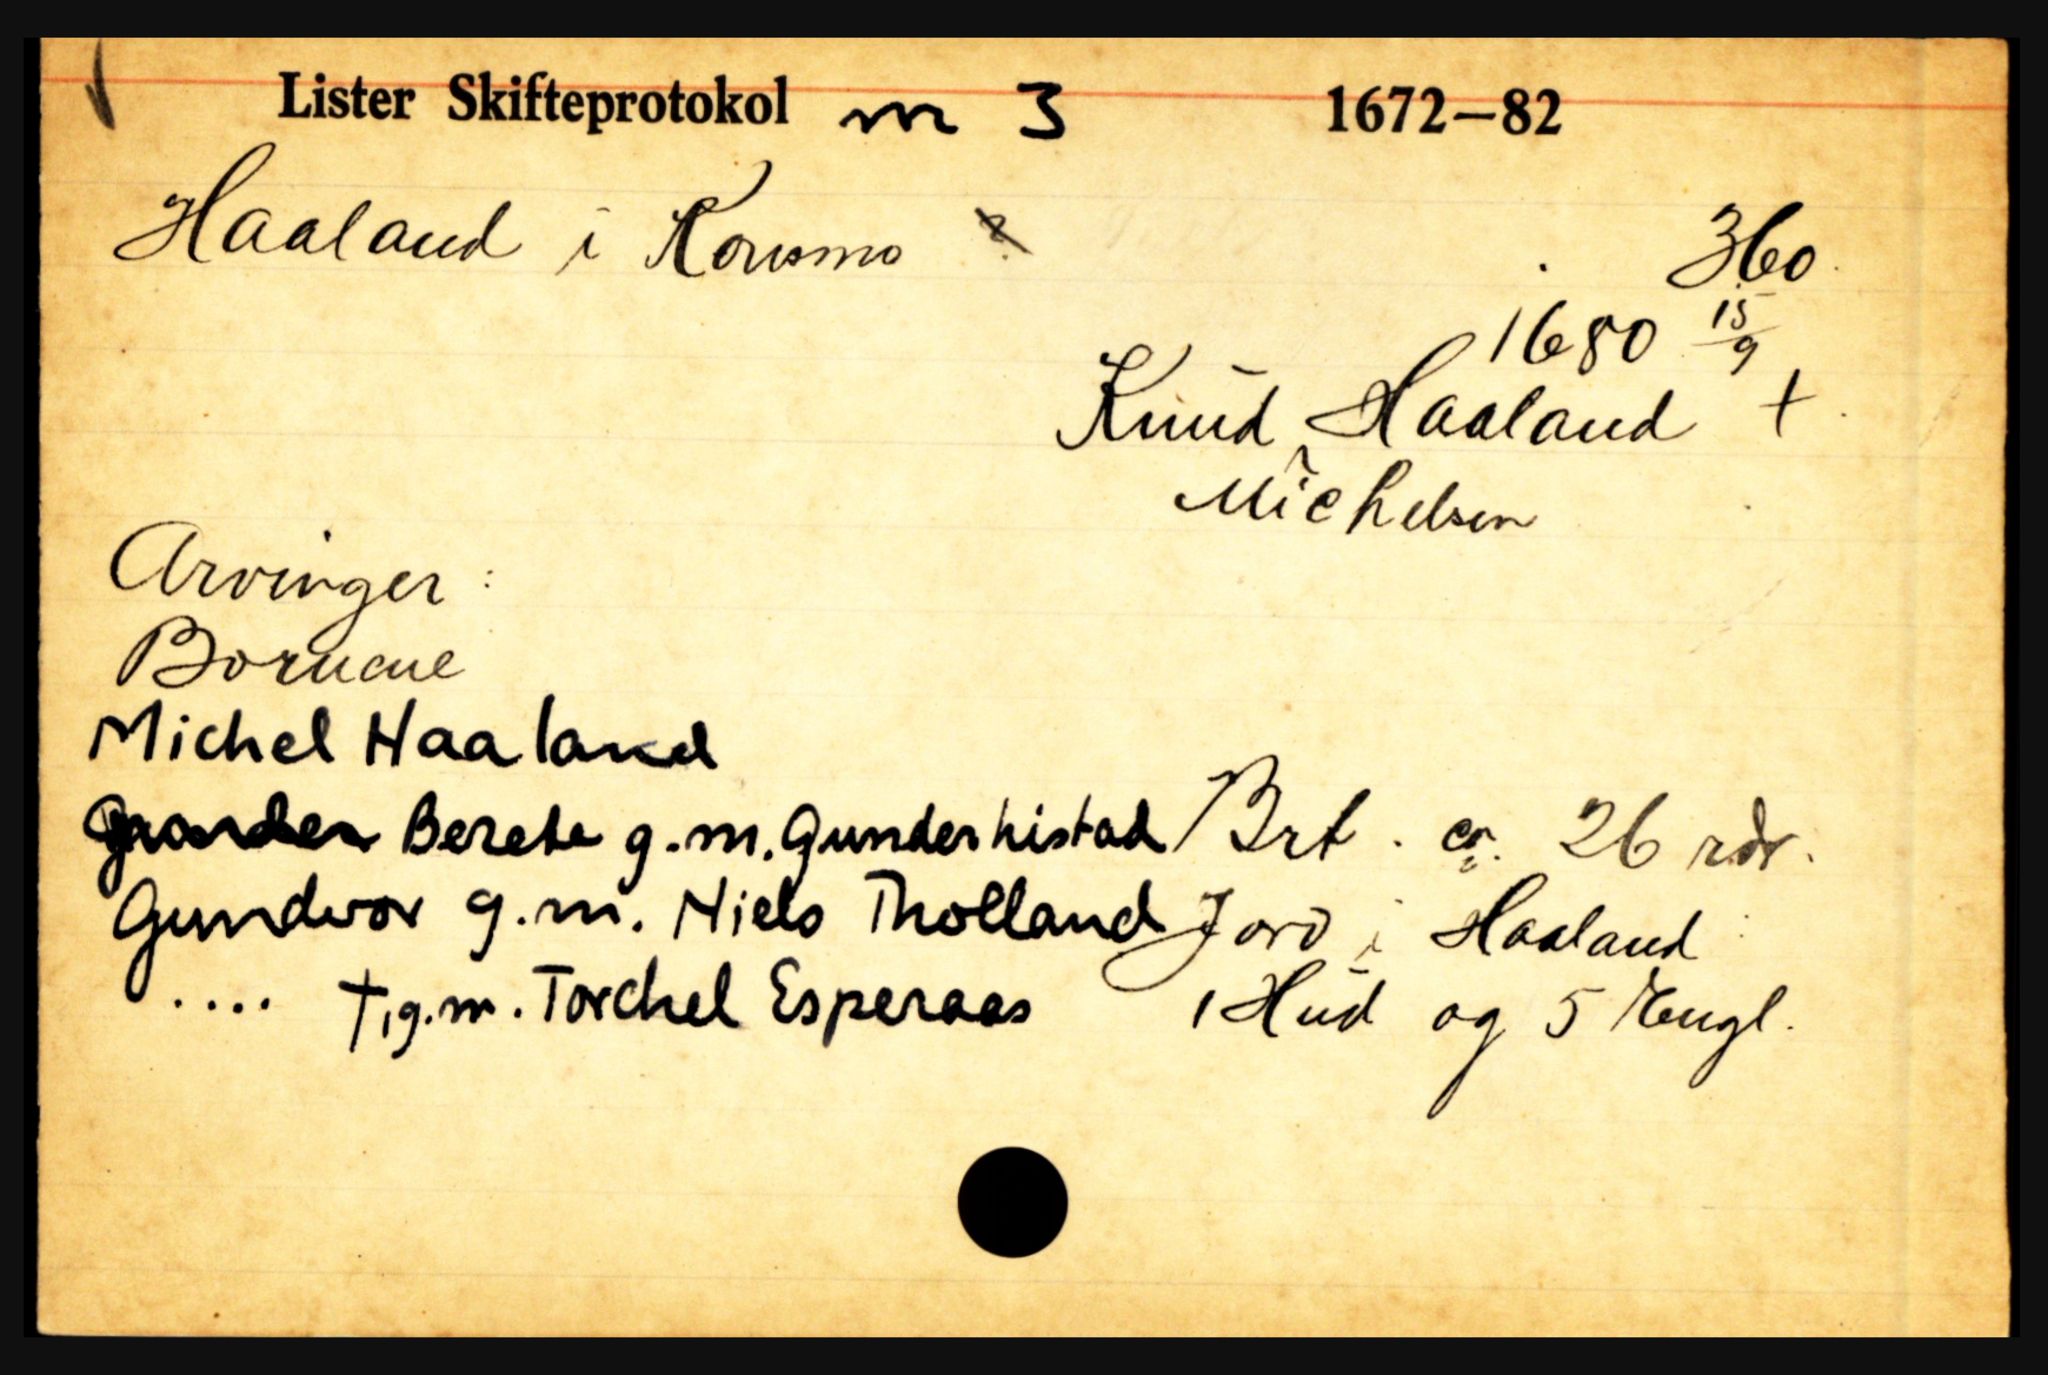 Lister Skifteprotokol nr 3 1672—82
Haaland i Konsmo
360
1680 15/9
Knud Haaland +
Michelsen
Arvinger:
Børnene
Michel Haaland
Berete g.m. Gunder histad Brt. ca. 26 rdr.
Gundvor g.m. Niels Tholland Jord i Haaland
.... †, g.m. Torchel Esperaas 1 Hud og 5 Engl.